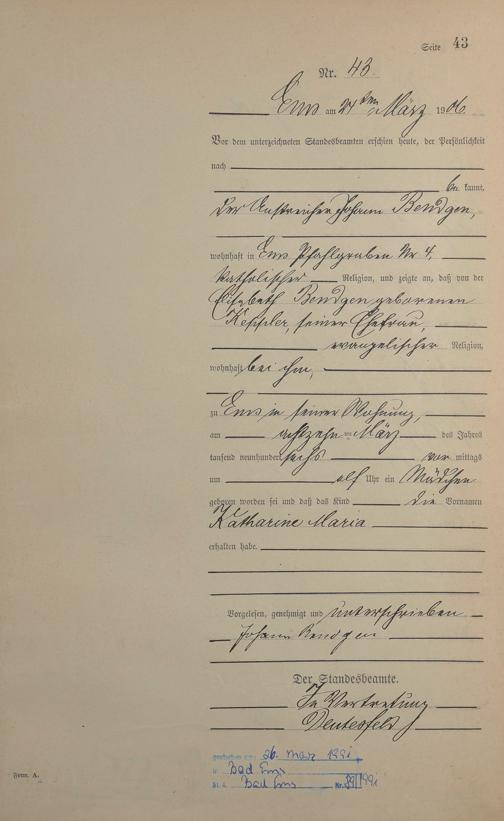 Seite 43
Nr. 43.
Ems am 21ten März 1906.
Vor dem unterzeichneten Standesbeamten erschien heute, der Persönlichkeit
nach
be kannt,
der Anstreicher Johann Bendgen,
wohnhaft in Ems Pfahlgraben Nr 4,
katholischer Religion, und zeigte an, daß von der
Elisabeth Bendgen geborenen
Keppler, seiner Ehefrau,
evangelischer Religion,
wohnhaft bei ihm,
zu Ems in seiner Wohnung,
am achtzehn ten März des Jahres
tausend neunhundert sechs vor mittags
um elf Uhr ein Mädchen
geboren worden sei und daß das Kind die Vornamen
Katharine Maria
erhalten habe.
Vorgelesen, genehmigt und unterschrieben
Johann Bendgen
Der Standesbeamte.
In Vertretung
gestorben am: 26. März 1991
in Bad Ems
St. A. Bad Ems Nr.
Form. A.